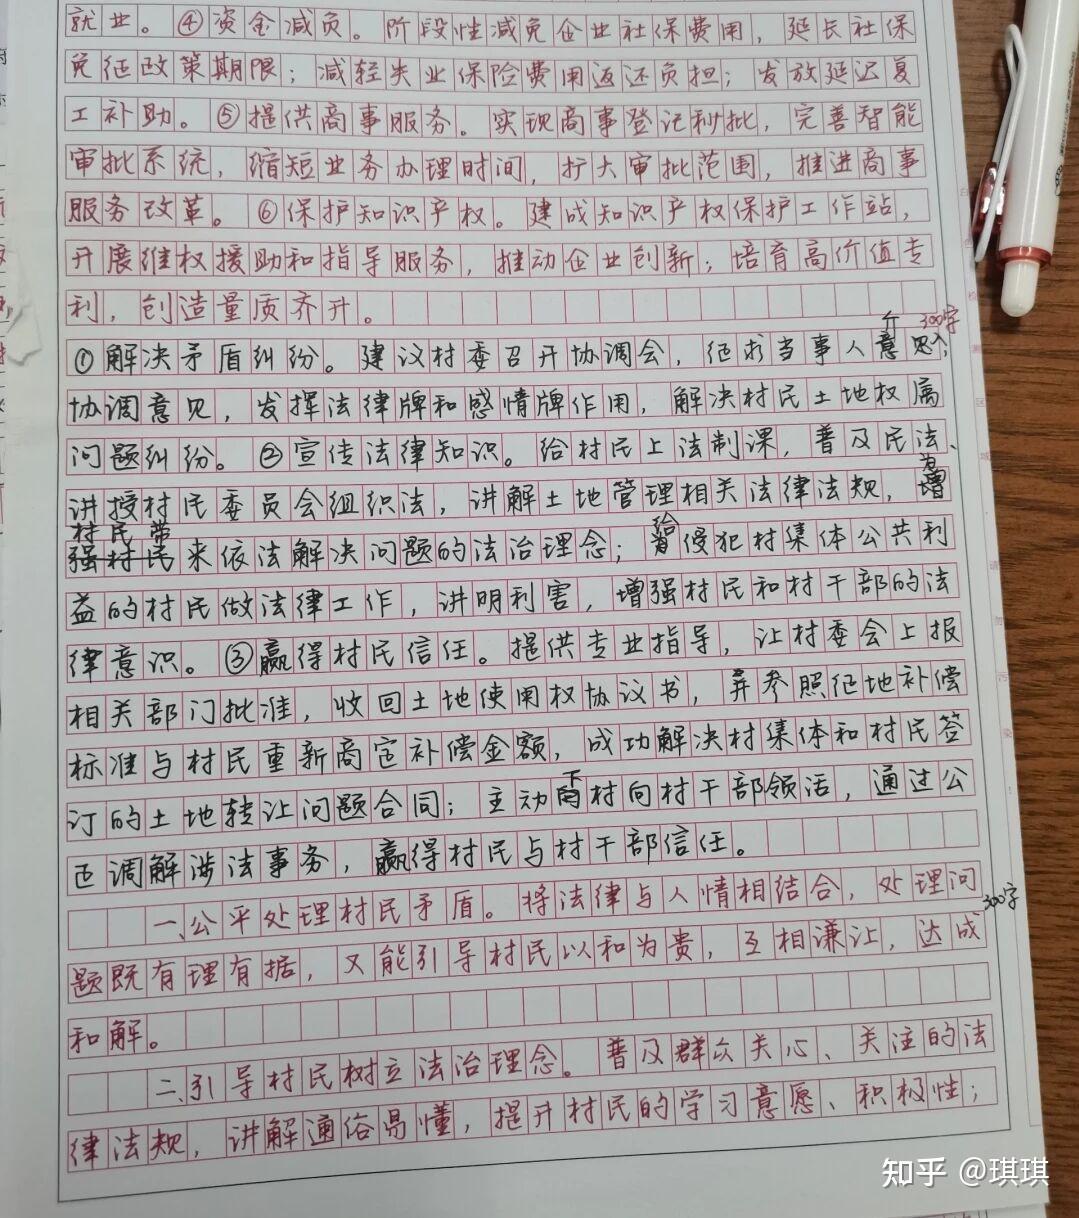 就业。④资金减负。阶段性减免企业社保费用，延长社保
免征政策期限；减轻失业保险费用返还负担；发放延迟复
工补助。⑤提供商事服务。实现商事登记秒批，完善智能
审批系统，缩短业务办理时间，扩大审批范围，推进商事
服务改革。⑥保护知识产权。建成知识产权保护工作站，
开展维权援助和指导服务，推动企业创新；培育高价值专
利，创造量质齐升。
300字
①解决矛盾纠纷。建议村委召开协调会，征求当事人意见；
协调意见，发挥法律牌和感情牌作用，解决村民土地权属
问题纠纷。②宣传法律知识。给村民上法制课，普及民法、
讲授村民委员会组织法，讲解土地管理相关法律法规，为增
村民带
强村民来依法解决问题的法治理念；给侵犯村集体公共利
益的村民做法律工作，讲明利害，增强村民和村干部的法
律意识。③赢得村民信任。提供专业指导，让村委会上报
相关部门批准，收回土地使用权协议书，并参照征地补偿
标准与村民重新商定补偿金额，成功解决村集体和村民签
订的土地转让问题合同；主动下村向村干部领活，通过公
正调解涉法事务，赢得村民与村干部信任。
一、公平处理村民矛盾。将法律与人情相结合，处理问
300字
题既有理有据，又能引导村民以和为贵，互相谦让，达成
和解。
二、引导村民树立法治理念。普及群众关心、关注的法
律法规，讲解通俗易懂，提升村民的学习意愿、积极性；
知乎 @琪琪